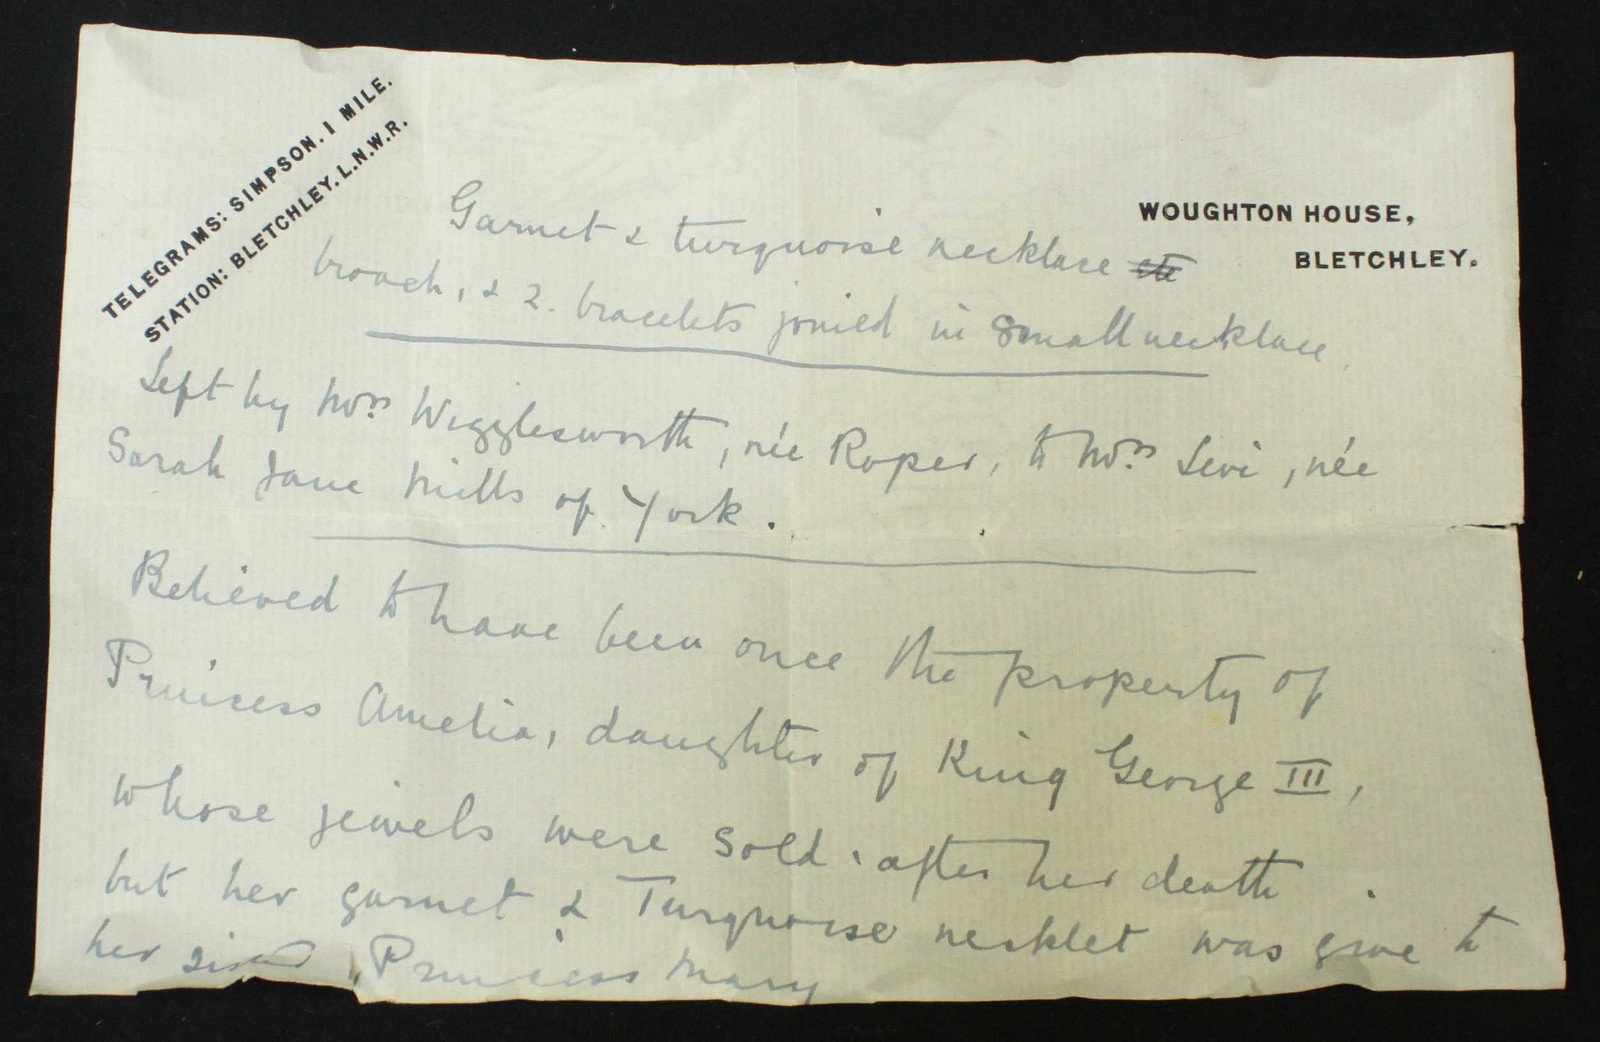 TELEGRAMS: SIMPSON. 1 MILE.
STATION: BLETCHLEY. L.N.W.R.
WOUGHTON HOUSE,
BLETCHLEY.
Garnet & turquoise necklace
broach, & 2. bracelets joined in small necklace.
Left by Mrs Wigglesworth, née Roper, to Mrs Levi, née
Sarah Jane Mills of York.
Believed to have been once the property of
Princess Amelia, daughter of King George III,
whose jewels were sold. after her death
but her garnet & Turquoise necklet was give to
her sister, Princess Mary